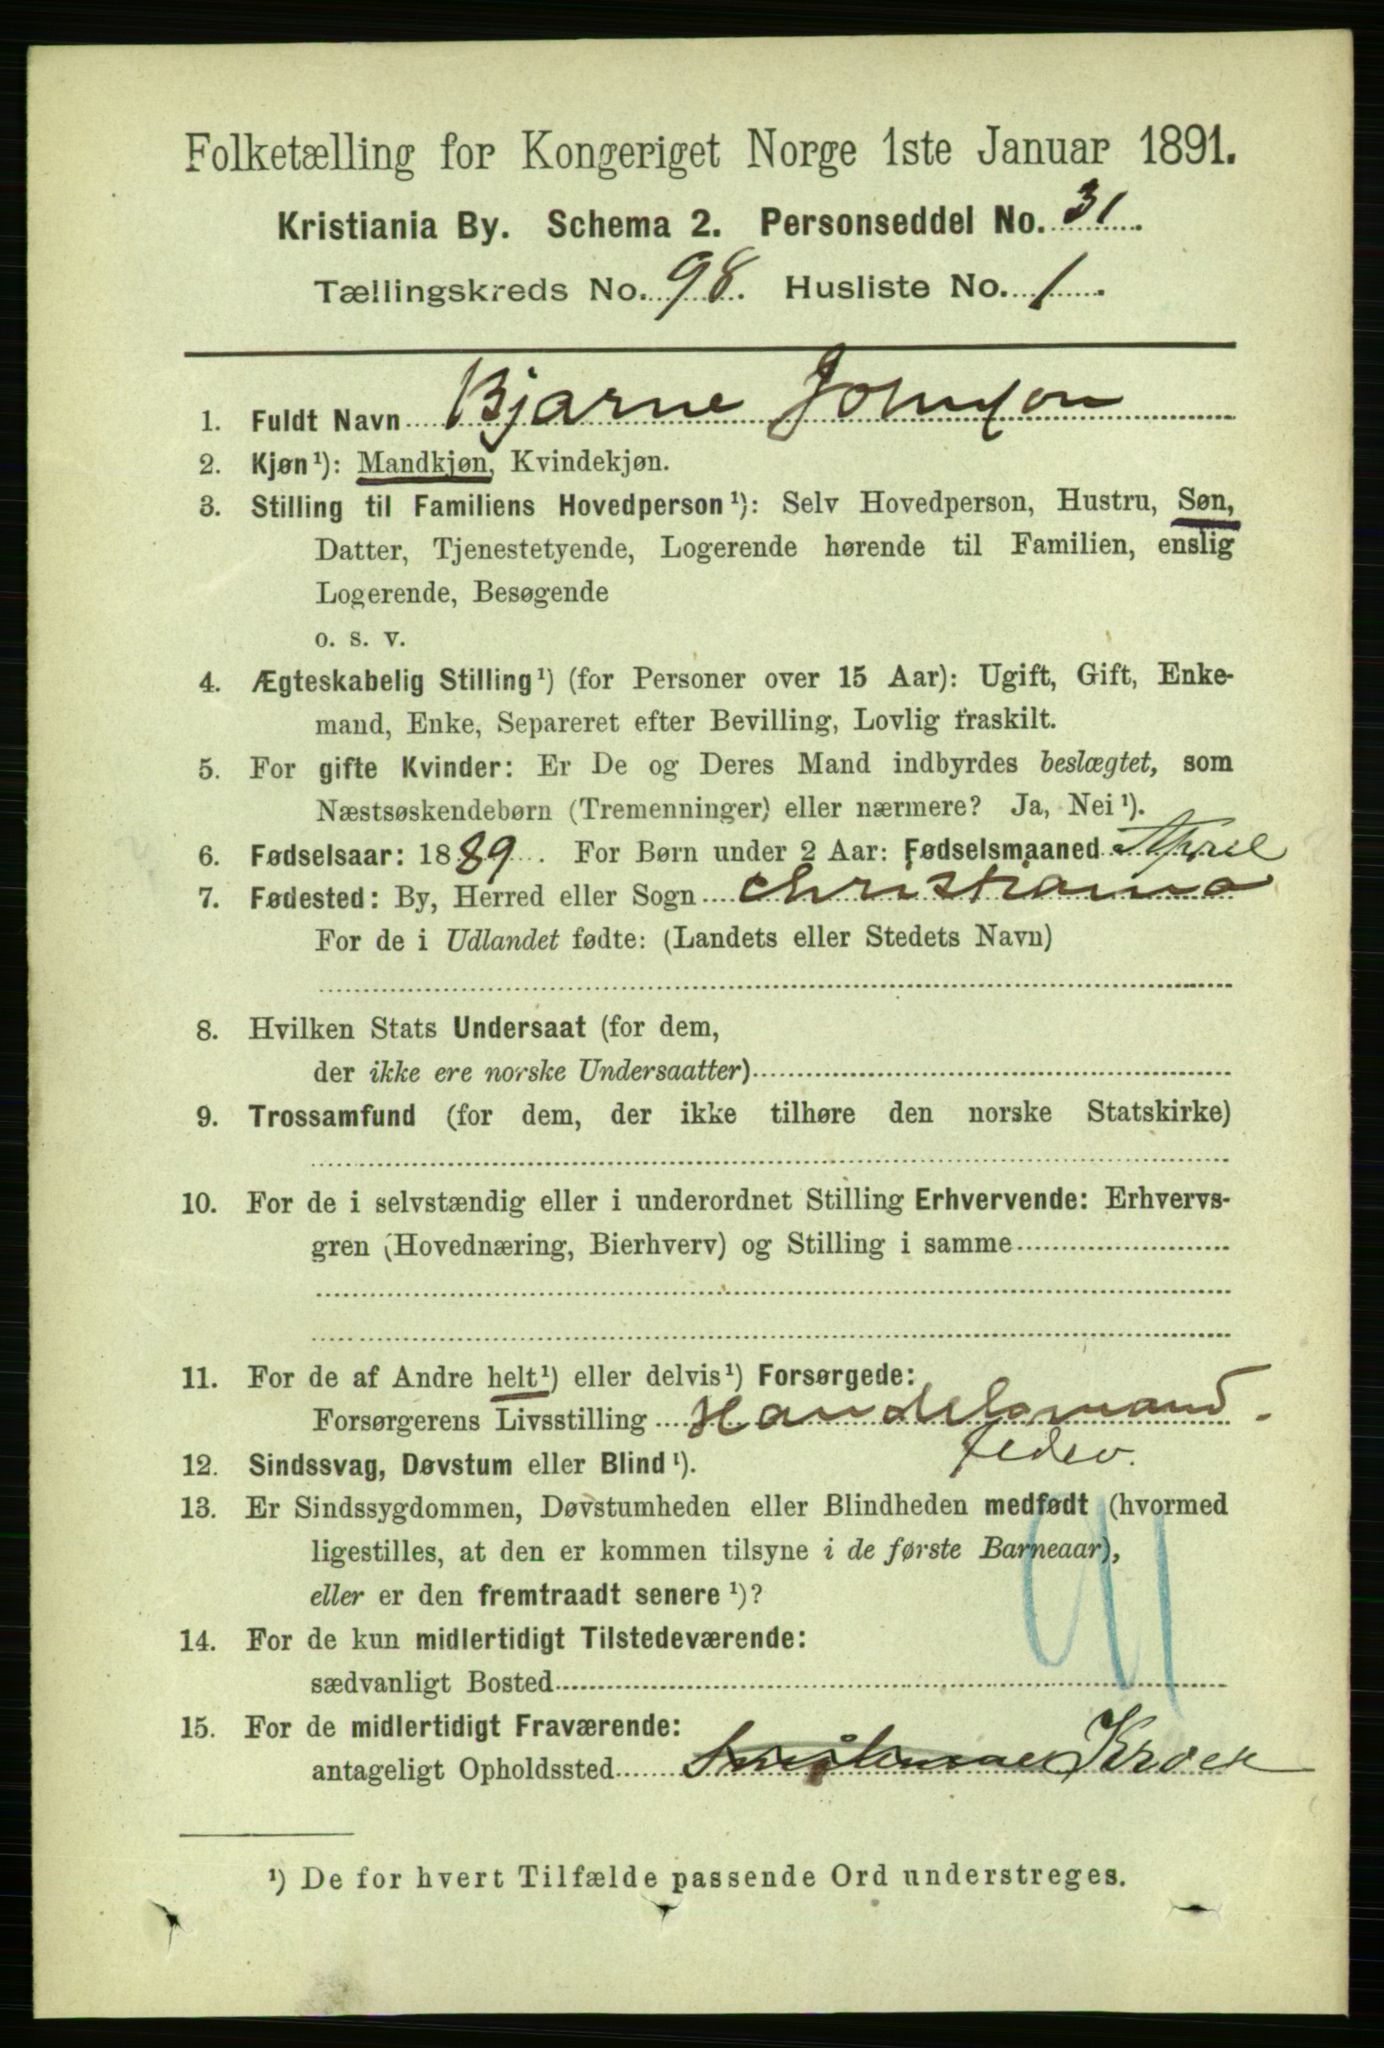 Folketælling for Kongeriget Norge 1ste Januar 1891.
Kristiania By. Schema 2. Personseddel No. 31.
Tællingskreds No. 98. Husliste No. 1.
1. Fuldt Navn Bjarne Johnson
2. Kjøn¹): Mandkjøn, Kvindekjøn.
3. Stilling til Familiens Hovedperson¹): Selv Hovedperson, Hustru, Søn,
Datter, Tjenestetyende, Logerende hørende til Familien, enslig
Logerende, Besøgende
o. s. v.
4. Ægteskabelig Stilling¹) (for Personer over 15 Aar): Ugift, Gift, Enke-
mand, Enke, Separeret efter Bevilling, Lovlig fraskilt.
5. For gifte Kvinder: Er De og Deres Mand indbyrdes beslægtet, som
Næstsøskendebørn (Tremenninger) eller nærmere? Ja, Nei¹).
6. Fødselsaar: 1889. For Børn under 2 Aar: Fødselsmaaned April
7. Fødested: By, Herred eller Sogn Christiania
For de i Udlandet fødte: (Landets eller Stedets Navn)
8. Hvilken Stats Undersaat (for dem,
der ikke ere norske Undersaatter)
9. Trossamfund (for dem, der ikke tilhøre den norske Statskirke)
10. For de i selvstændig eller i underordnet Stilling Erhvervende: Erhvervs-
gren (Hovednæring, Bierhverv) og Stilling i samme
11. For de af Andre helt¹) eller delvis¹) Forsørgede:
Forsørgerens Livsstilling Handelsmand.
12. Sindssvag, Døvstum eller Blind¹).
13. Er Sindssygdommen, Døvstumheden eller Blindheden medfødt (hvormed
ligestilles, at den er kommen tilsyne i de første Barneaar),
eller er den fremtraadt senere¹)?
91
14. For de kun midlertidigt Tilstedeværende:
sædvanligt Bosted
15. For de midlertidigt Fraværende:
antageligt Opholdssted
¹) De for hvert Tilfælde passende Ord understreges.